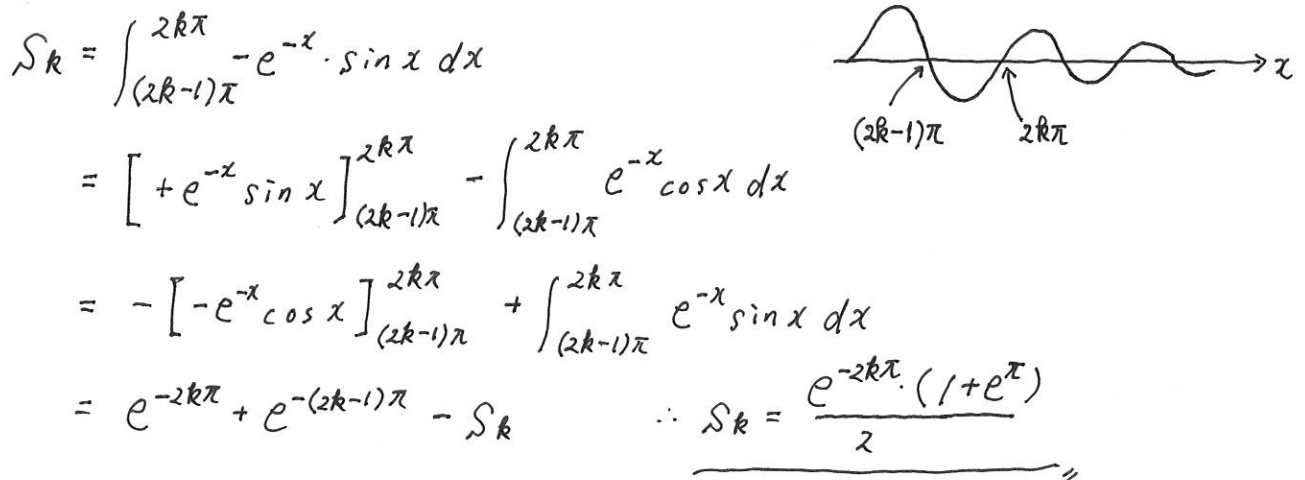 S_k = ∫_{(2k-1)π}^{2kπ} -e^{-x}·sin x dx
= [+e^{-x} sin x]_{(2k-1)π}^{2kπ} - ∫_{(2k-1)π}^{2kπ} e^{-x} cos x dx
= -[-e^{-x} cos x]_{(2k-1)π}^{2kπ} + ∫_{(2k-1)π}^{2kπ} e^{-x} sin x dx
= e^{-2kπ} + e^{-(2k-1)π} - S_k ∴ S_k = \frac{e^{-2kπ}·(1+e^{π})}{2}
x
(2k-1)π 2kπ